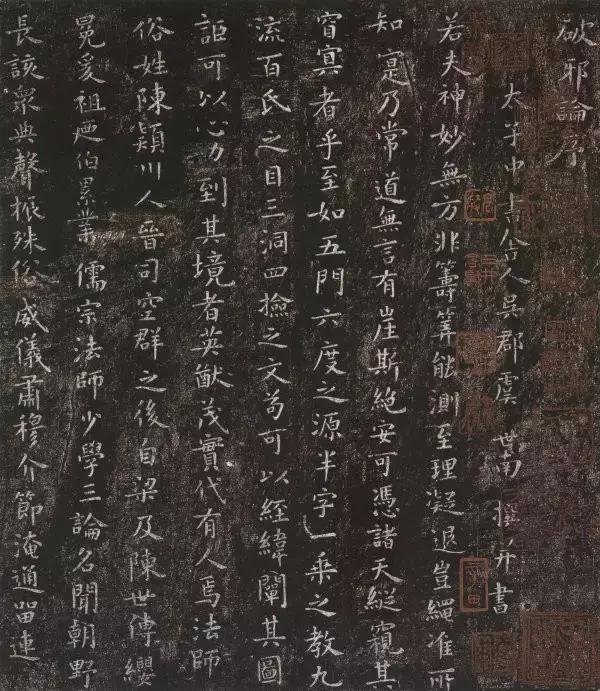 破邪論序
太子中書舍人吳郡虞世南撰并書
若夫神妙無方非籌筭能測至理凝退豈繩准所
知寔乃常道無言有崖斯絕安可憑諸天縱窺其
窅冥者乎至如五門六度之源半字一乘之教九
流百氏之目三洞四撿之文苟可以經緯闡其圖
詎可以心力到其境者英猷茂實代有人焉法師
俗姓陳潁川人晉司空群之後自梁及陳世傳纓
冕爰祖伯累業儒宗法師少學三論名聞朝野
長該眾典聲振殊俗威儀肅穆介節淹通留連